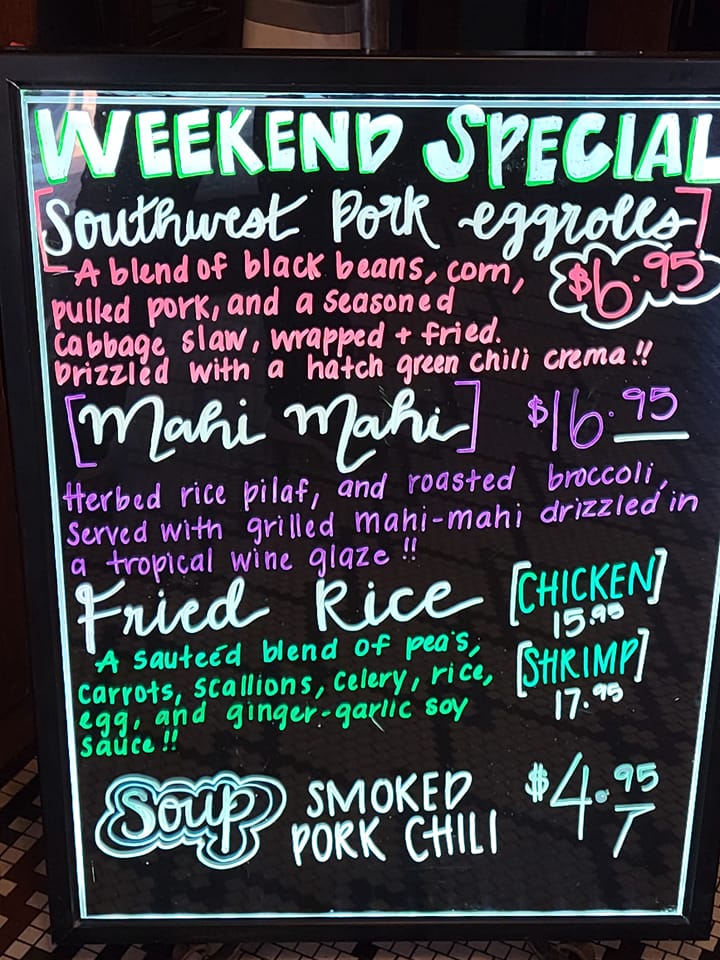 WEEKEND SPECIAL
[Southwest Pork eggrolls]
- A blend of black beans, corn,
$6.95
pulled pork, and a seasoned
cabbage slaw, wrapped + fried.
Drizzled with a hatch green chili crema!!
[Mahi Mahi] $16.95
Herbed rice pilaf, and roasted broccoli,
served with grilled mahi-mahi drizzled in
a tropical wine glaze!!
Fried Rice
[CHICKEN]
15.95
A sauteéd blend of pea's,
carrots, scallions, celery, rice,
egg, and ginger-garlic soy
sauce!!
[SHRIMP]
17.95
Soup SMOKED
PORK CHILI
$4.95
7